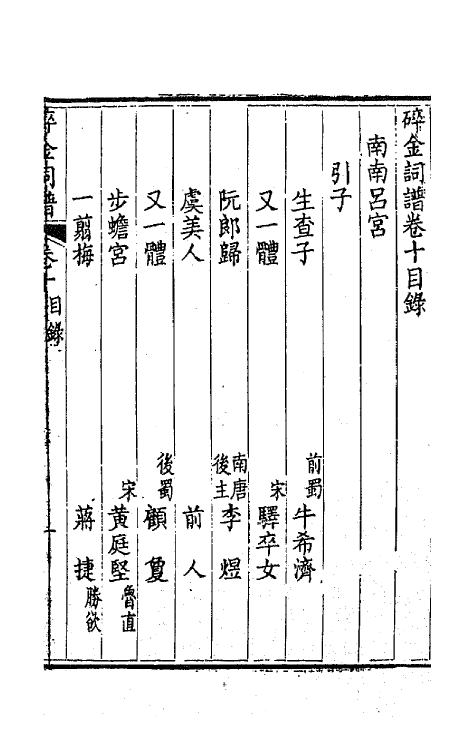 碎金詞譜卷十目錄
南南呂宮
引子
生查子 前蜀 牛希濟
又一體 宋 驛卒女
阮郎歸 南唐後主 李煜
虞美人 前人
又一體 後蜀 顧敻
步蟾宮 宋 黃庭堅 魯直
一翦梅 蔣捷 勝欲
碎金詞譜 卷十 目錄 一